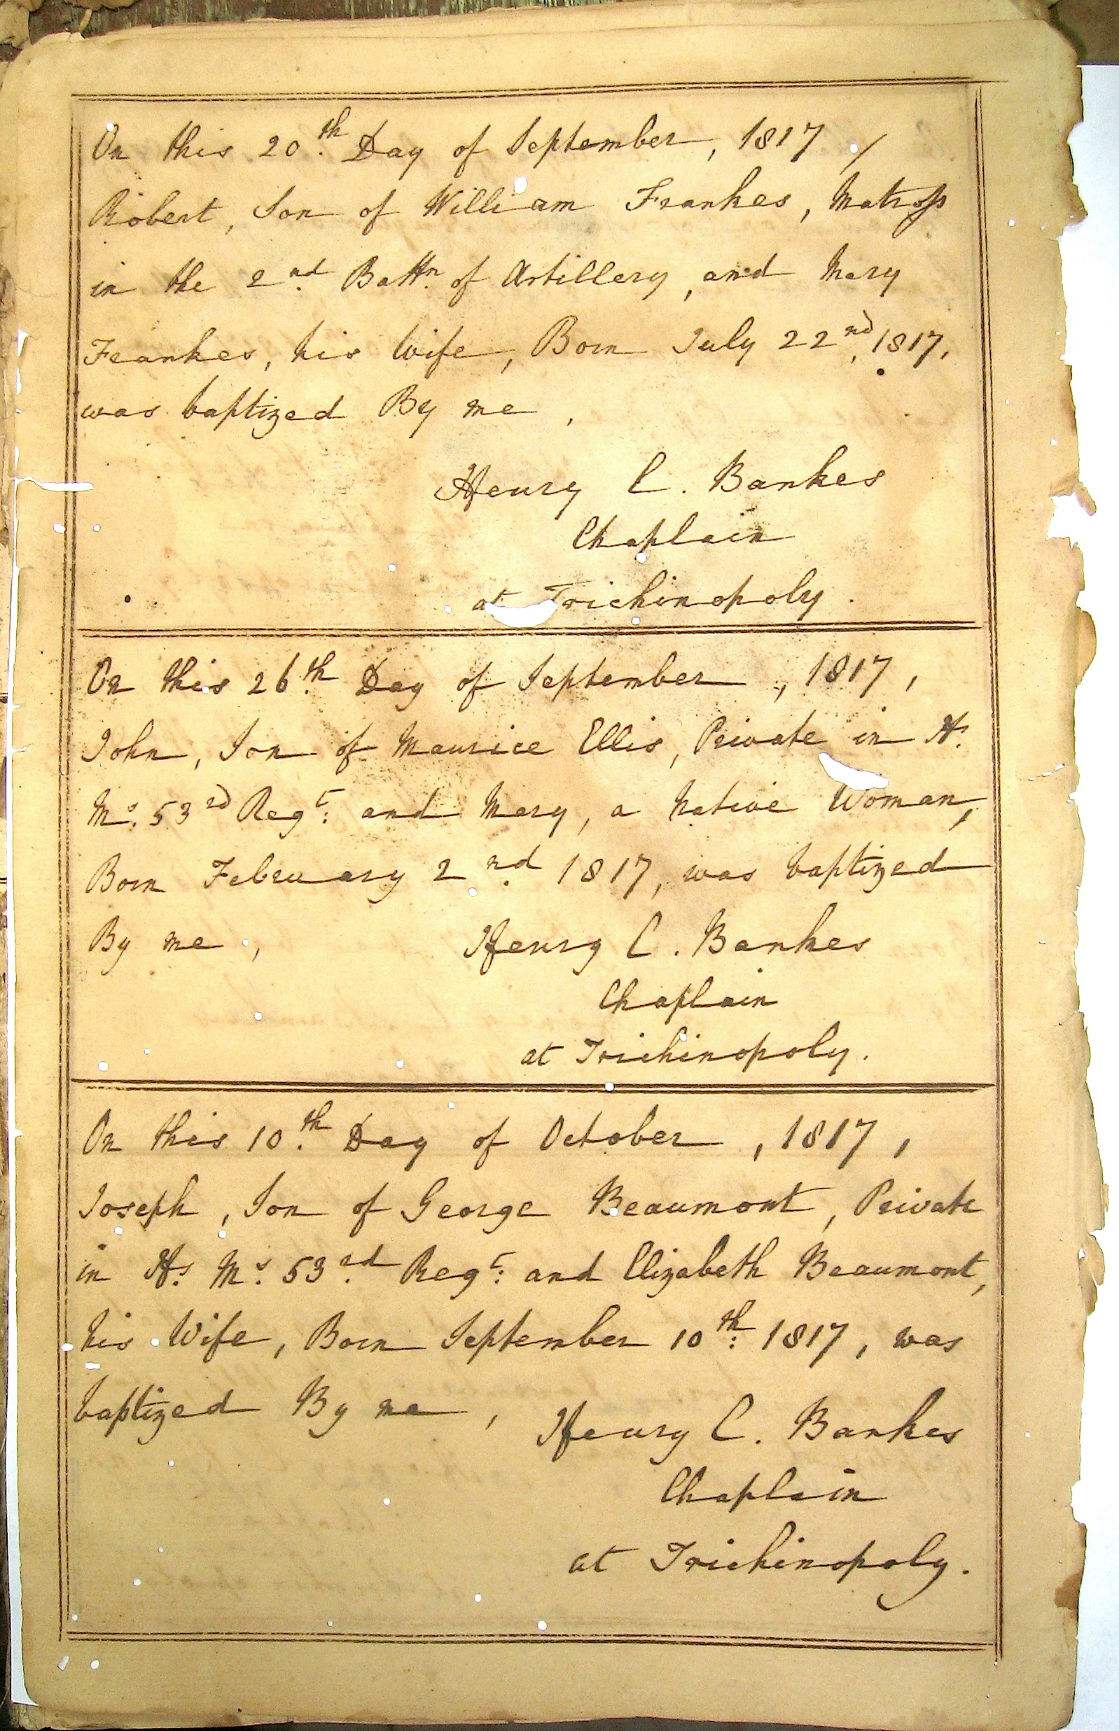 On this 20th Day of September, 1817,
Robert, Son of William Frankes, Matross
in the 2nd. Battn. of Artillery, and Mary
Frankes, his Wife, Born July 22nd, 1817,
was baptized By me,
Henry C. Bankes
Chaplain
at Trichinopoly.
On this 26th. Day of September, 1817,
John, Son of Maurice Ellis, Private in Hs.
Ms. 53rd Regt: and Mary, a Native Woman,
Born February 2nd. 1817, was baptized
By me,
Henry C. Bankes
Chaplain
at Trichinopoly.
On this 10th. Day of October, 1817,
Joseph, Son of George Beaumont, Private
in Hs. Ms. 53rd. Regt: and Elizabeth Beaumont,
his Wife, Born September 10th: 1817, was
baptized By me,
Henry C. Bankes
Chaplain
at Trichinopoly.